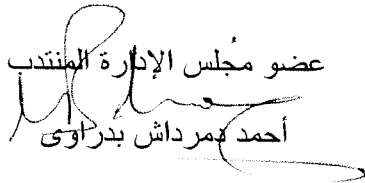 عضو مجلس الإدارة المنتدب
أحمد دمرداش بدراوى